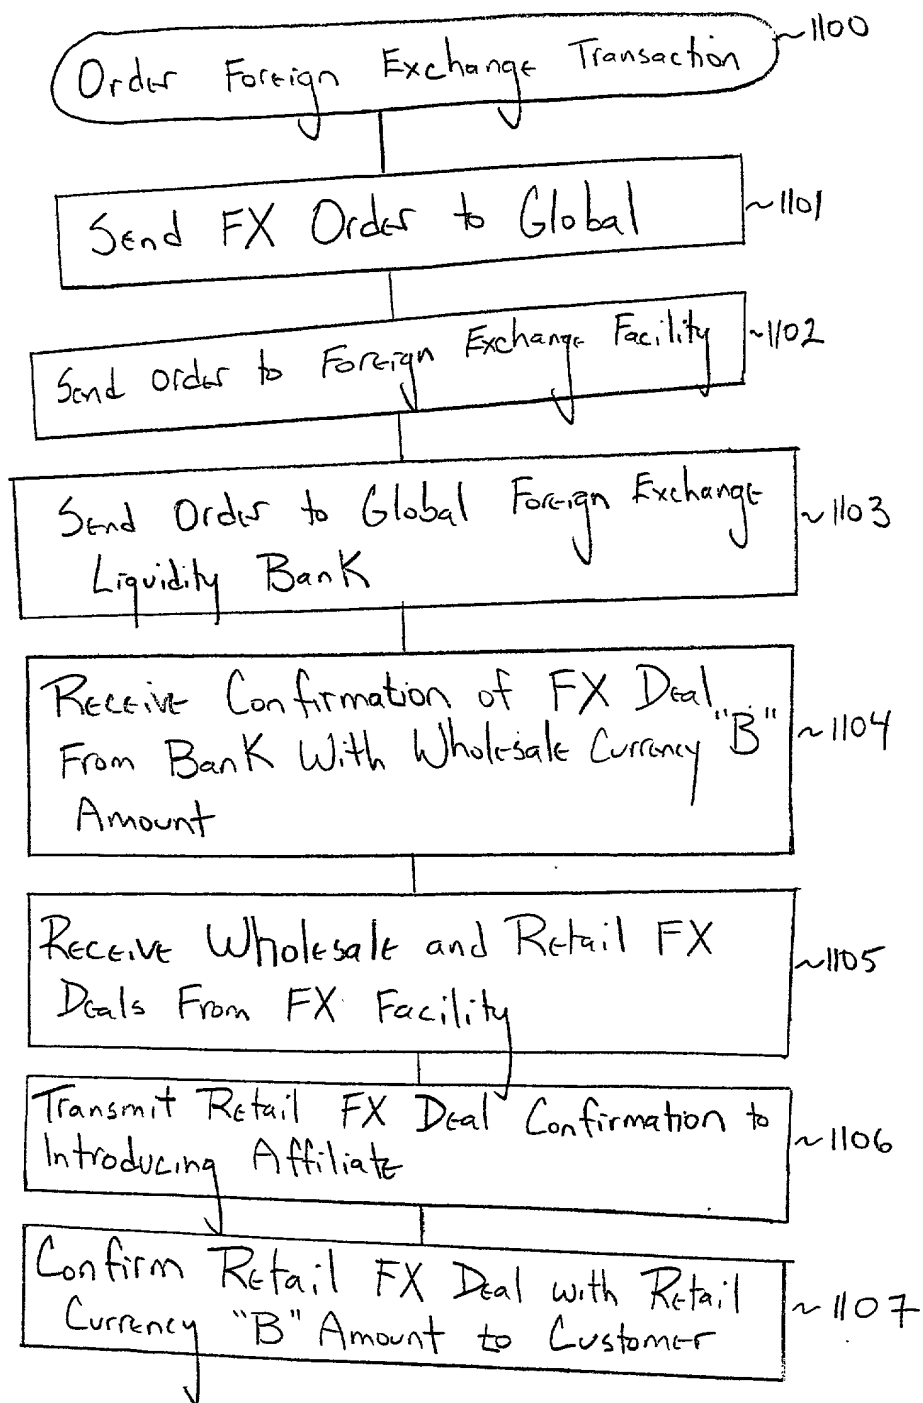 Order Foreign Exchange Transaction ~1100
Send FX Order to Global ~1101
Send Order to Foreign Exchange Facility ~1102
Send Order to Global Foreign Exchange ~1103
Liquidity Bank
Receive Confirmation of FX Deal
From Bank With Wholesale Currency "B" ~1104
Amount
Receive Wholesale and Retail FX ~1105
Deals From FX Facility
Transmit Retail FX Deal Confirmation to ~1106
Introducing Affiliate
Confirm Retail FX Deal with Retail ~1107
Currency "B" Amount to Customer